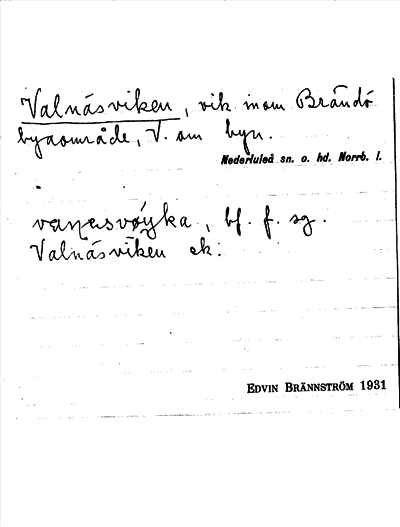 Valnäsviken, vik inom Brändö
byaområde, V. om byn.
Nederluleå sn. o. hd. Norrb. l.
bf. f. sg.
Valnäsviken ek.
EDVIN BRÄNNSTRÖM 1931